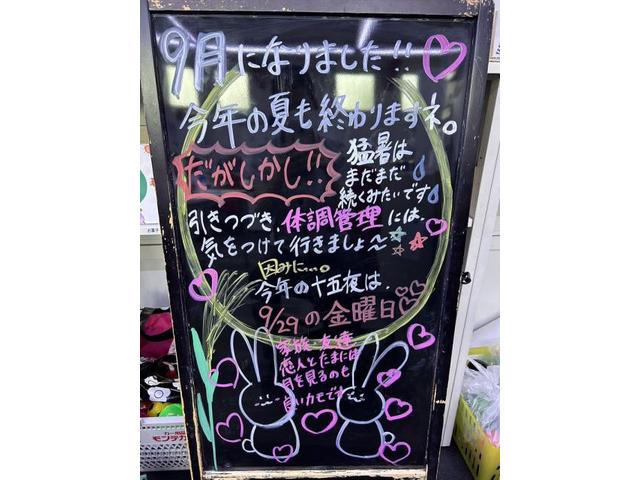 9月になりました!!
今年の夏も終わりますネ。
だがしかし!!
猛暑は
まだまだ
続くみたいです
引きつづき、体調管理には、
気をつけて行きましょ〜
因みに…。
今年の十五夜は、
9/29の金曜日
家族・友達
恋人とたまには
月を見るのも
良いカモです